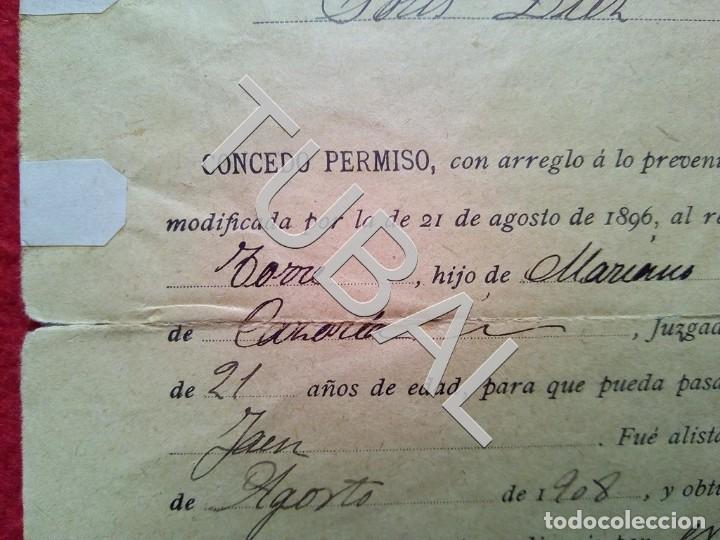 Diez
CONCEDO PERMISO, con arreglo á lo preveni
modificada por la de 21 de agosto de 1896, al re
Torre, hijo de Mariano
de , Juzgad
de 21 años de edad, para que pueda pasa
Jaen. Fué alista
de Agosto de 1908, y obtu
TUBAL
todocoleccion